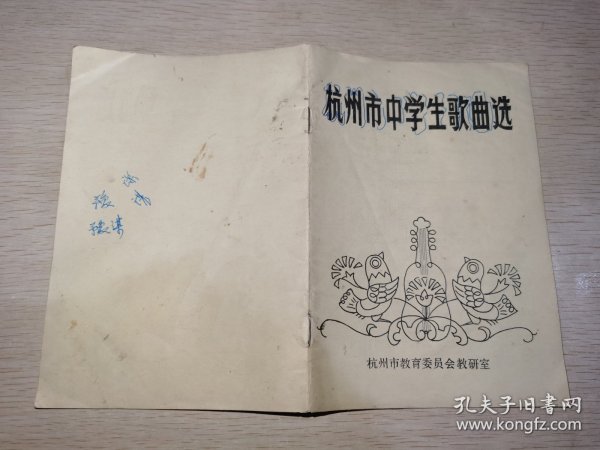 杭州市中学生歌曲选
杭州市教育委员会教研室
孔夫子旧书网
www.kongfz.com